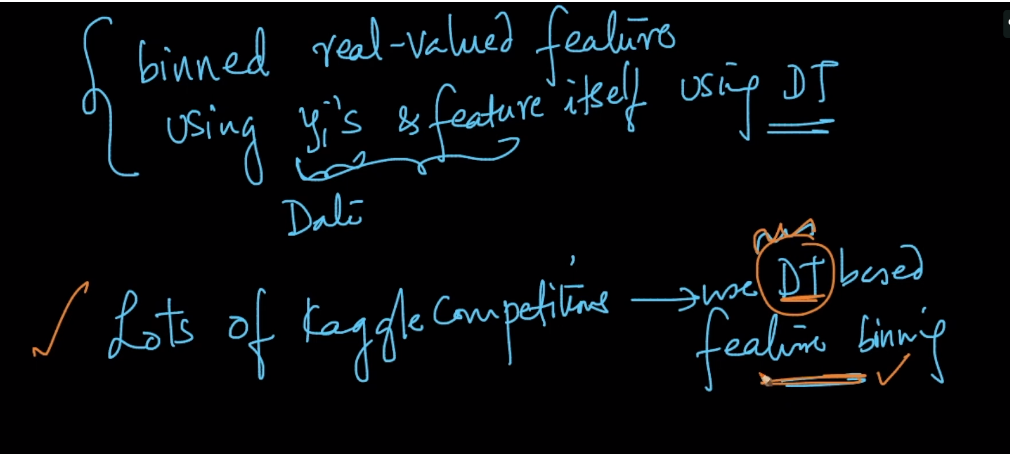 binned real-valued feature
using yi's & feature itself using DT
Data
Lots of Kaggle Competitions → use DT based
feature binning